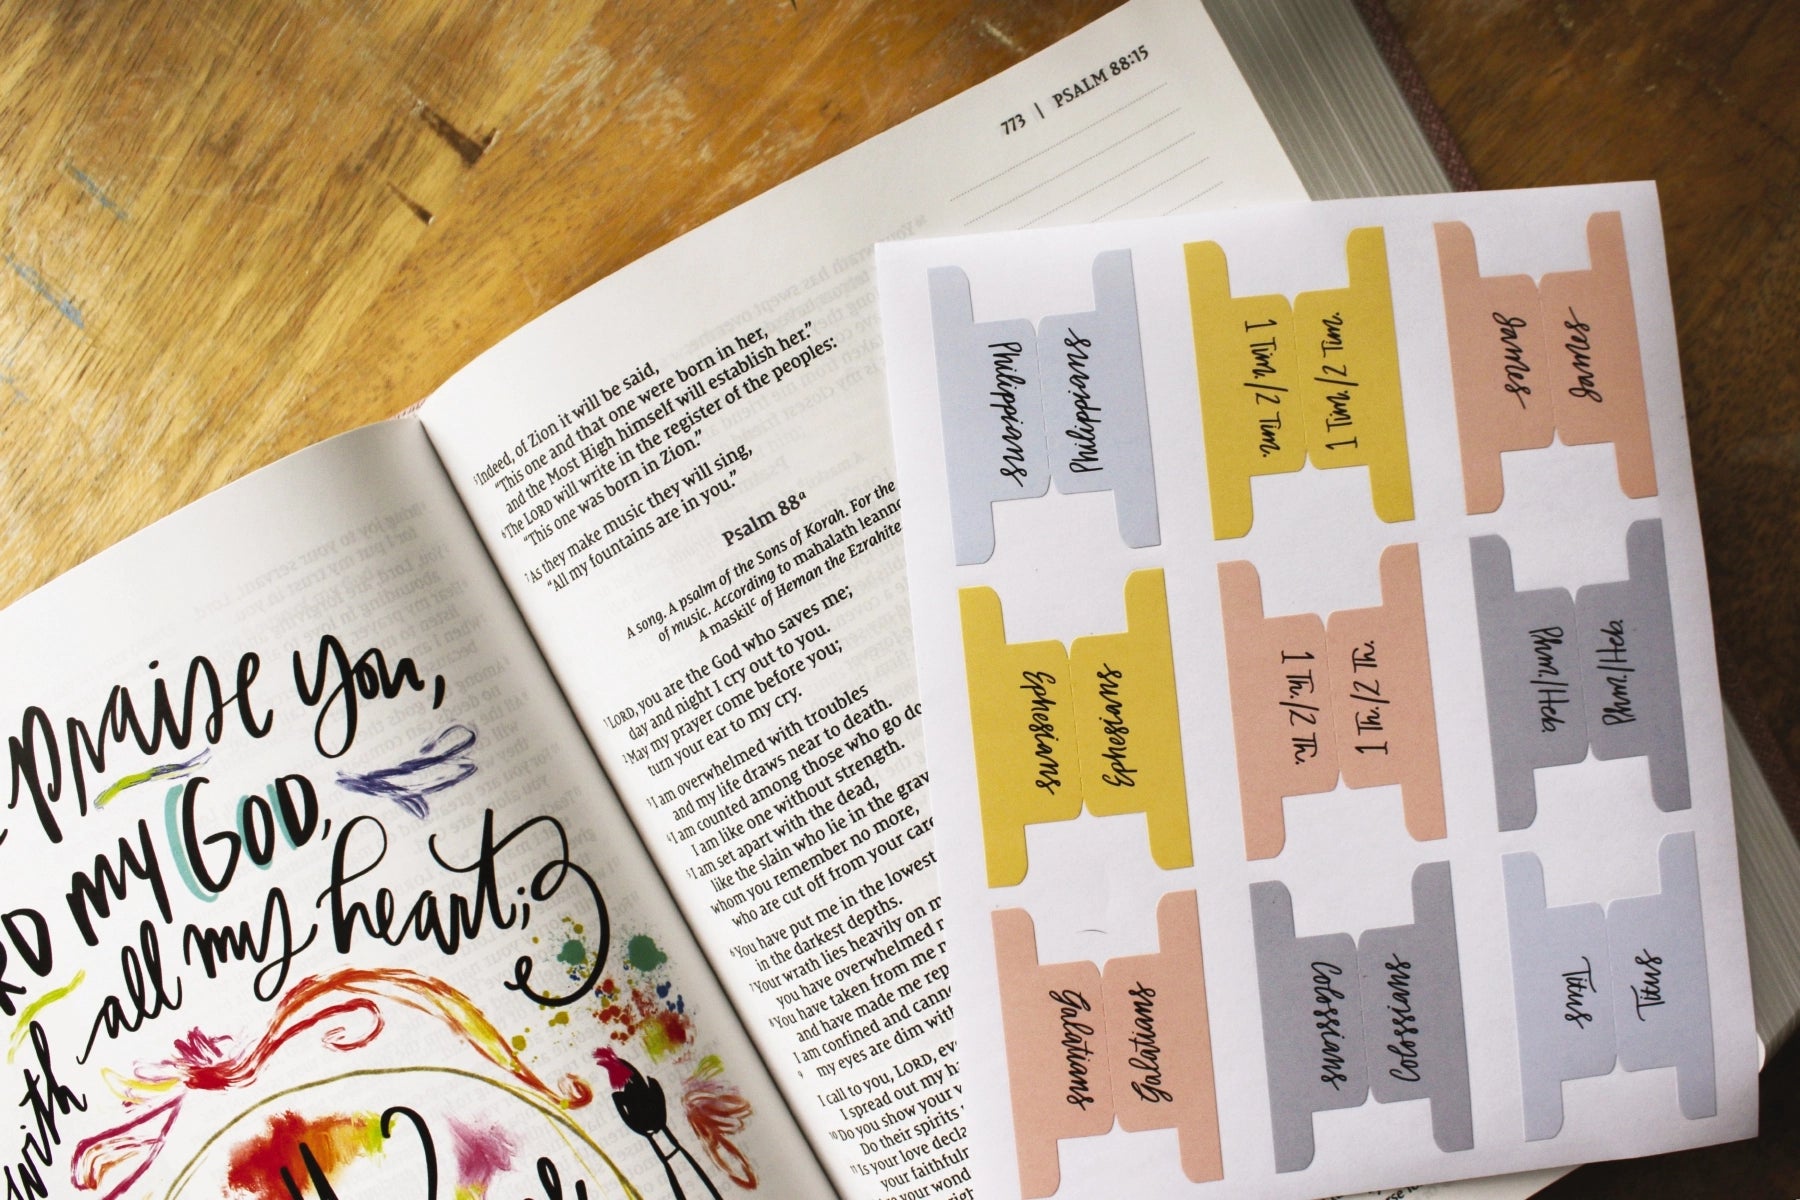 praise you,
my God,
all my heart;
with
773 | PSALM 88:15
⁵Indeed, of Zion it will be said,
“This one and that one were born in her,
and the Most High himself will establish her.”
⁶The LORD will write in the register of the peoples:
“This one was born in Zion.”
⁷As they make music they will sing,
“All my fountains are in you.”
Psalm 88ᵃ
A song. A psalm of the Sons of Korah. For the
of music. According to mahalath leann
A maskilᶜ of Heman the Ezrahite
¹LORD, you are the God who saves me;
day and night I cry out to you.
²May my prayer come before you;
turn your ear to my cry.
³I am overwhelmed with troubles
and my life draws near to death.
⁴I am counted among those who go do
I am like one without strength.
⁵I am set apart with the dead,
like the slain who lie in the grav
whom you remember no more,
who are cut off from your care
⁶You have put me in the lowest
in the darkest depths.
⁷Your wrath lies heavily on m
you have overwhelmed
⁸You have taken from me
and have made me rep
I am confined and cann
⁹my eyes are dim with
I call to you, LORD, ev
I spread out my ha
¹⁰Do you show your
Do their spirits
¹¹Is your love decla
your faithfuln
your wond
Philippians
Philippians
1 Tim./2 Tim.
1 Tim./2 Tim.
James
James
Ephesians
Ephesians
1 Th./2 Th.
1 Th./2 Th.
Phm./Heb.
Phm./Heb.
Galatians
Galatians
Colossians
Colossians
Titus
Titus